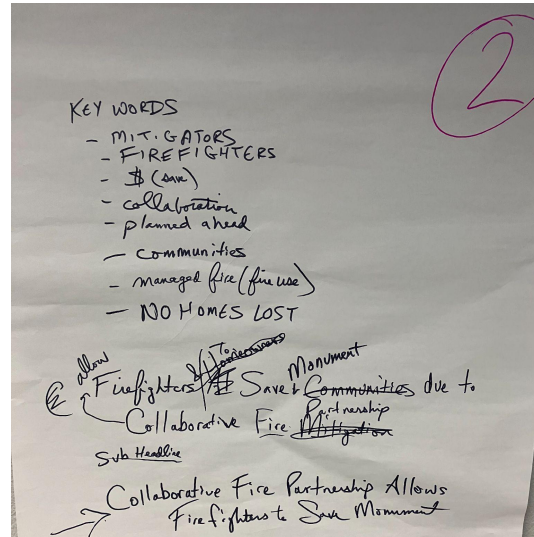 2
KEY WORDS
- MITIGATORS
- FIREFIGHTERS
- $ (save)
- collaboration
- planned ahead
- communities
- managed fire (fire use)
- NO HOMES LOST
allow To Homeowners Monument
Firefighters Save Communities due to
Partnership
Collaborative Fire Mitigation
Sub Headline
Collaborative Fire Partnership Allows
Firefighters to Save Monument